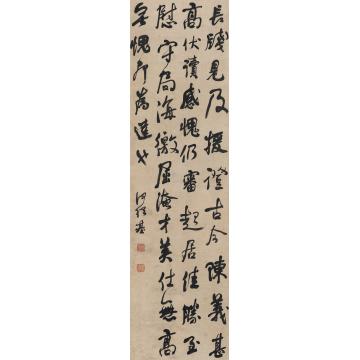 長牋見及援證古今陳義甚
高伏讀感愧仍審起居佳勝至
慰守局海徼屈淹才美仕無高
愧行為達
何紹基